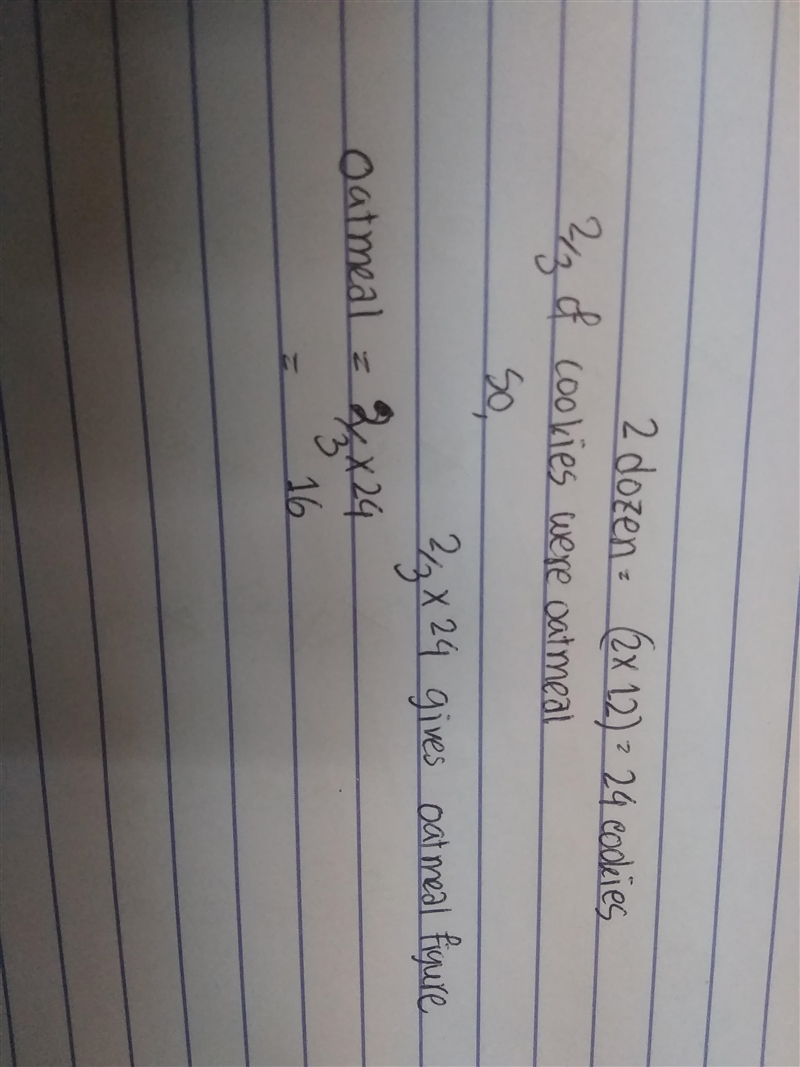 2 dozen = (2x12) = 24 cookies
2/3 of cookies were oatmeal
so,
2/3 x 24 gives oatmeal figure
oatmeal = 2/3 x 24
= 16